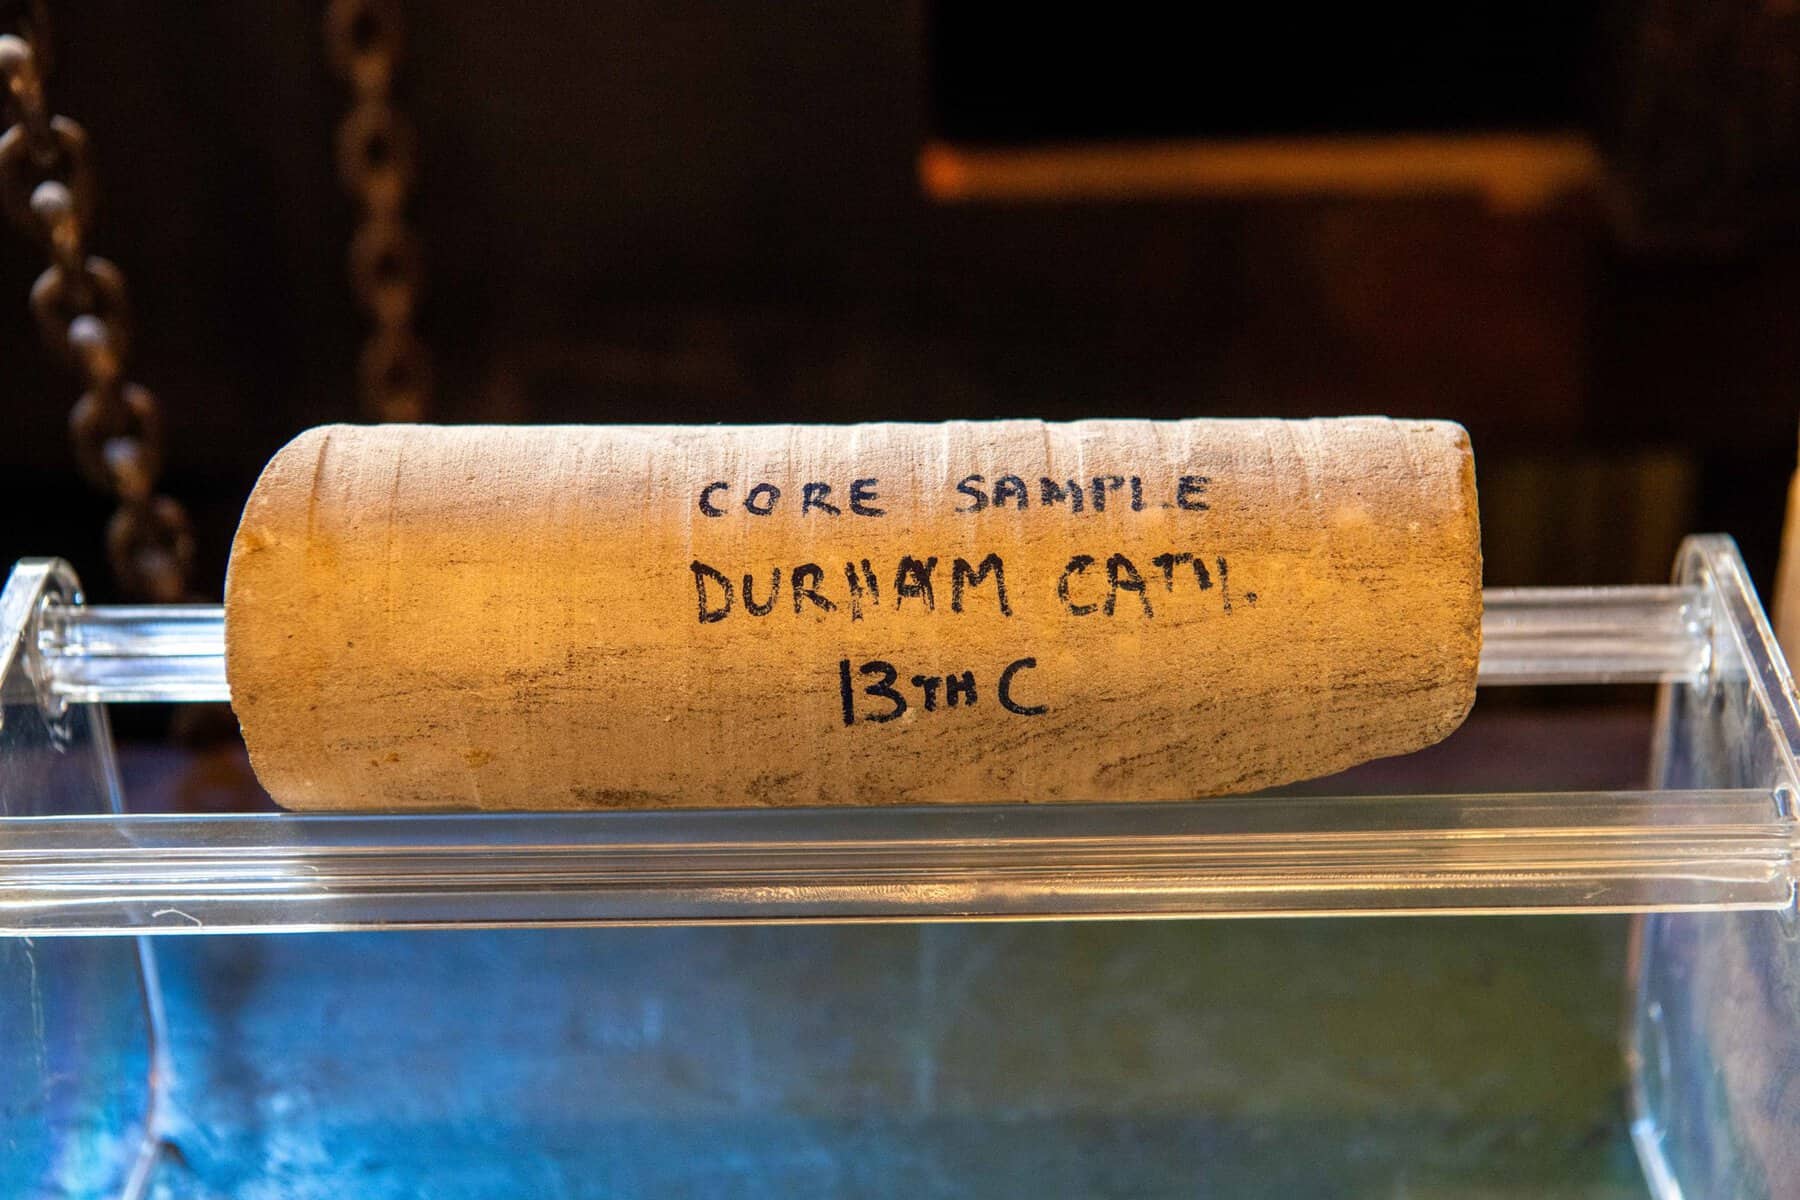 CORE SAMPLE
DURHAM CATH.
13TH C